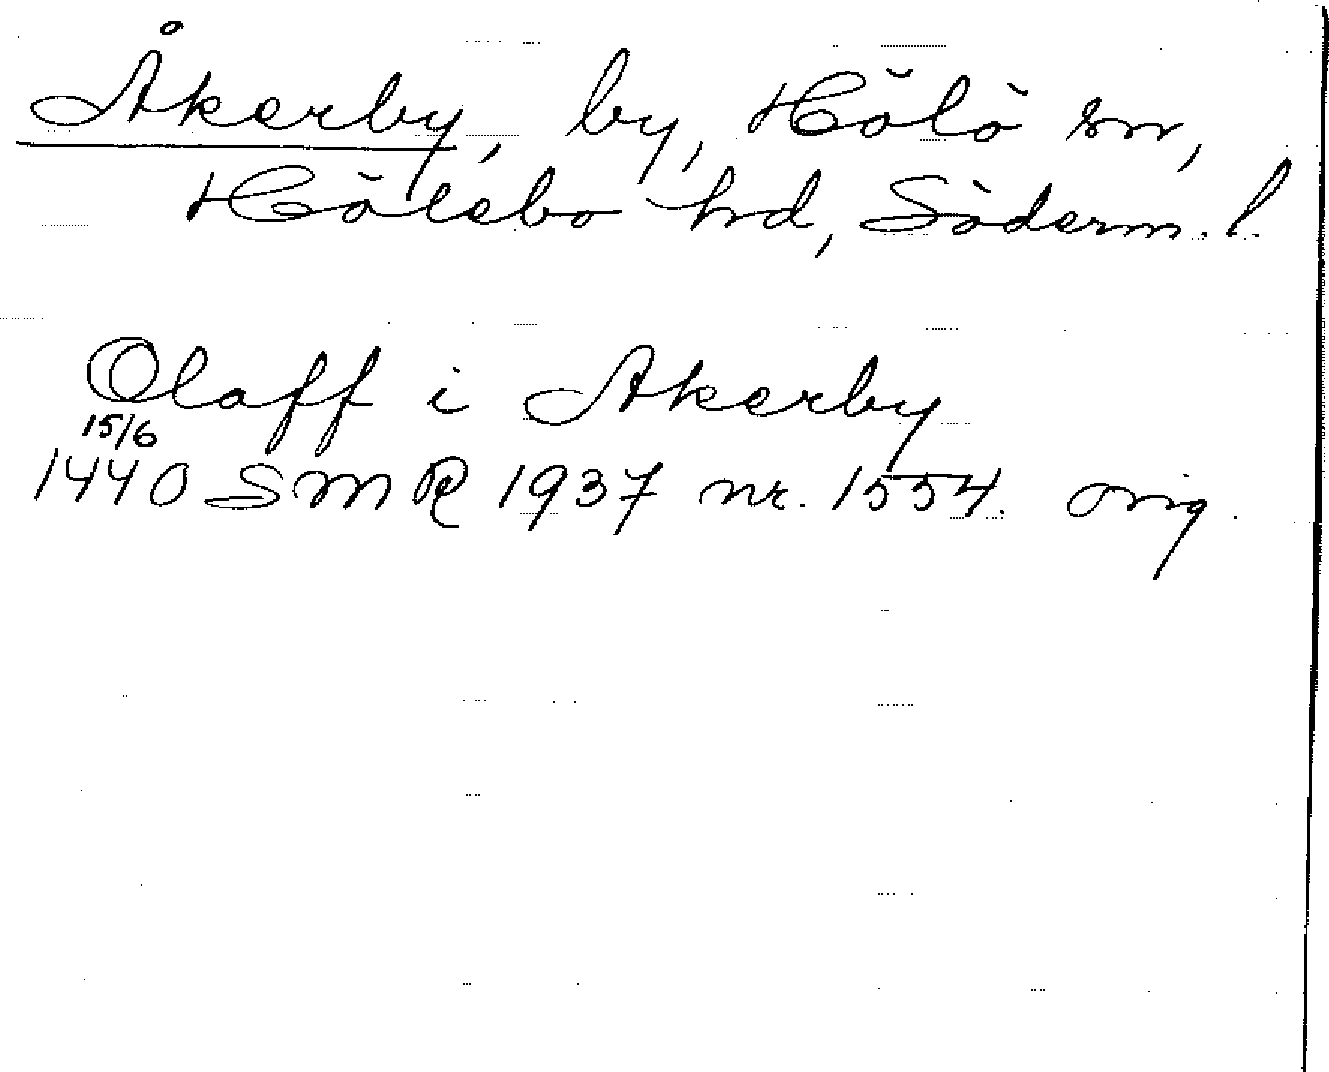 Åkerby, by, Hölö sn,
Hölebo hd, Söderm. l.
Olaff i Akerby
15/6
1440 SMR 1937 nr. 1554. orig.